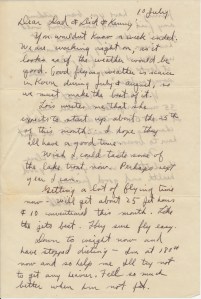 10 July
Dear Dad & Did & Kenny:
You wouldn't know a week ended.
We are working right on, as it
looks as if the weather would be
good. Good flying weather is scarce
in Korea during July & August, so
we must make the best of it.
Lois writes me that she
expects to start up about the 25th
of this month. I hope they
all have a good time.
Wish I could taste some of
the lake trout now. Perhaps next
year I can.
Getting a lot of flying time
now - will get about 25 jet hours
& 10 conventional this month. Like
the jets best. They sure fly easy.
Down to weight now and
have stopped dieting - Am at 170#
now and so help me I'll try not
to get any heavier. Feel so much
better when I'm not fat.